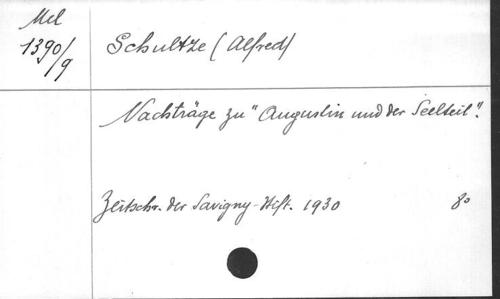 Mel
1390/9
Schultze (Alfred)
Nachträge zu "Augustin und der Seelteil".
Zeitschr. der Savigny-Stift. 1930 8°